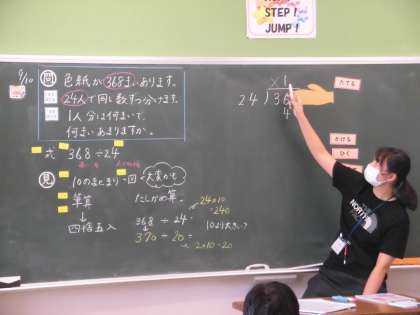 STEP!
JUMP!
9/10
問 色紙が368まいあります。
24人で同じ数ずつ分けます。
1人分は何まいで、
何まいあまりますか。
式 368÷24
見 10のまとまり 図 大変かも
筆算
↓
四捨五入
たしかめ算。
368÷24
↓
370÷20=
24×10
=240
10より大きい?
2×10=20
×1
24)36
4
たてる
かける
ひく
THE
NORTH